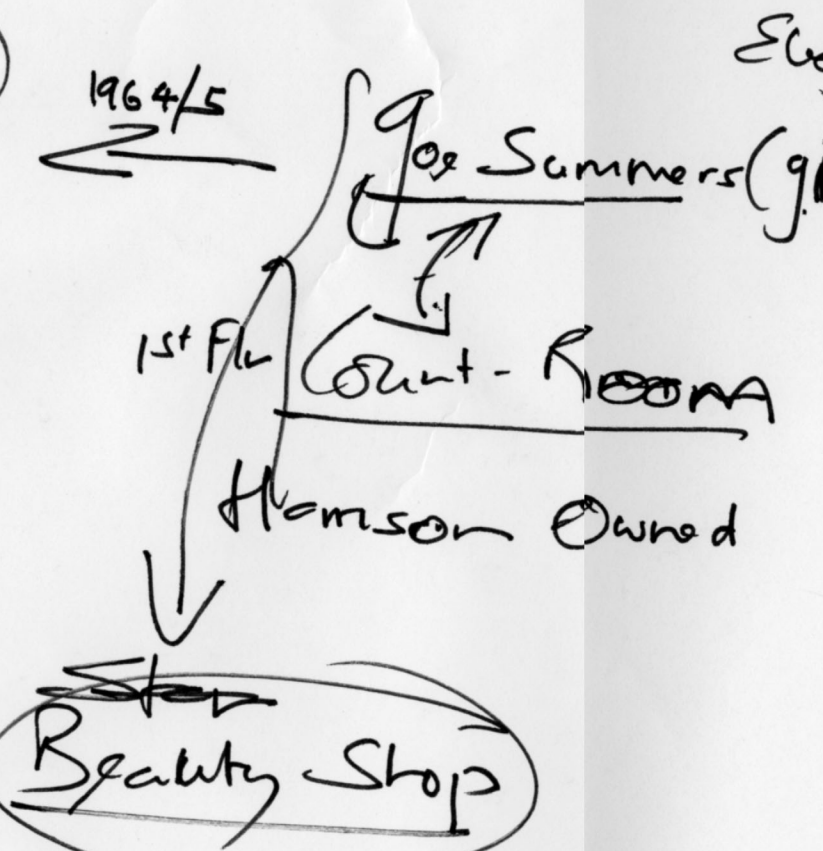 1964/5
Joe Summers (g.
1st Flr
Count-Room
Harrison Owned
Beauty Shop